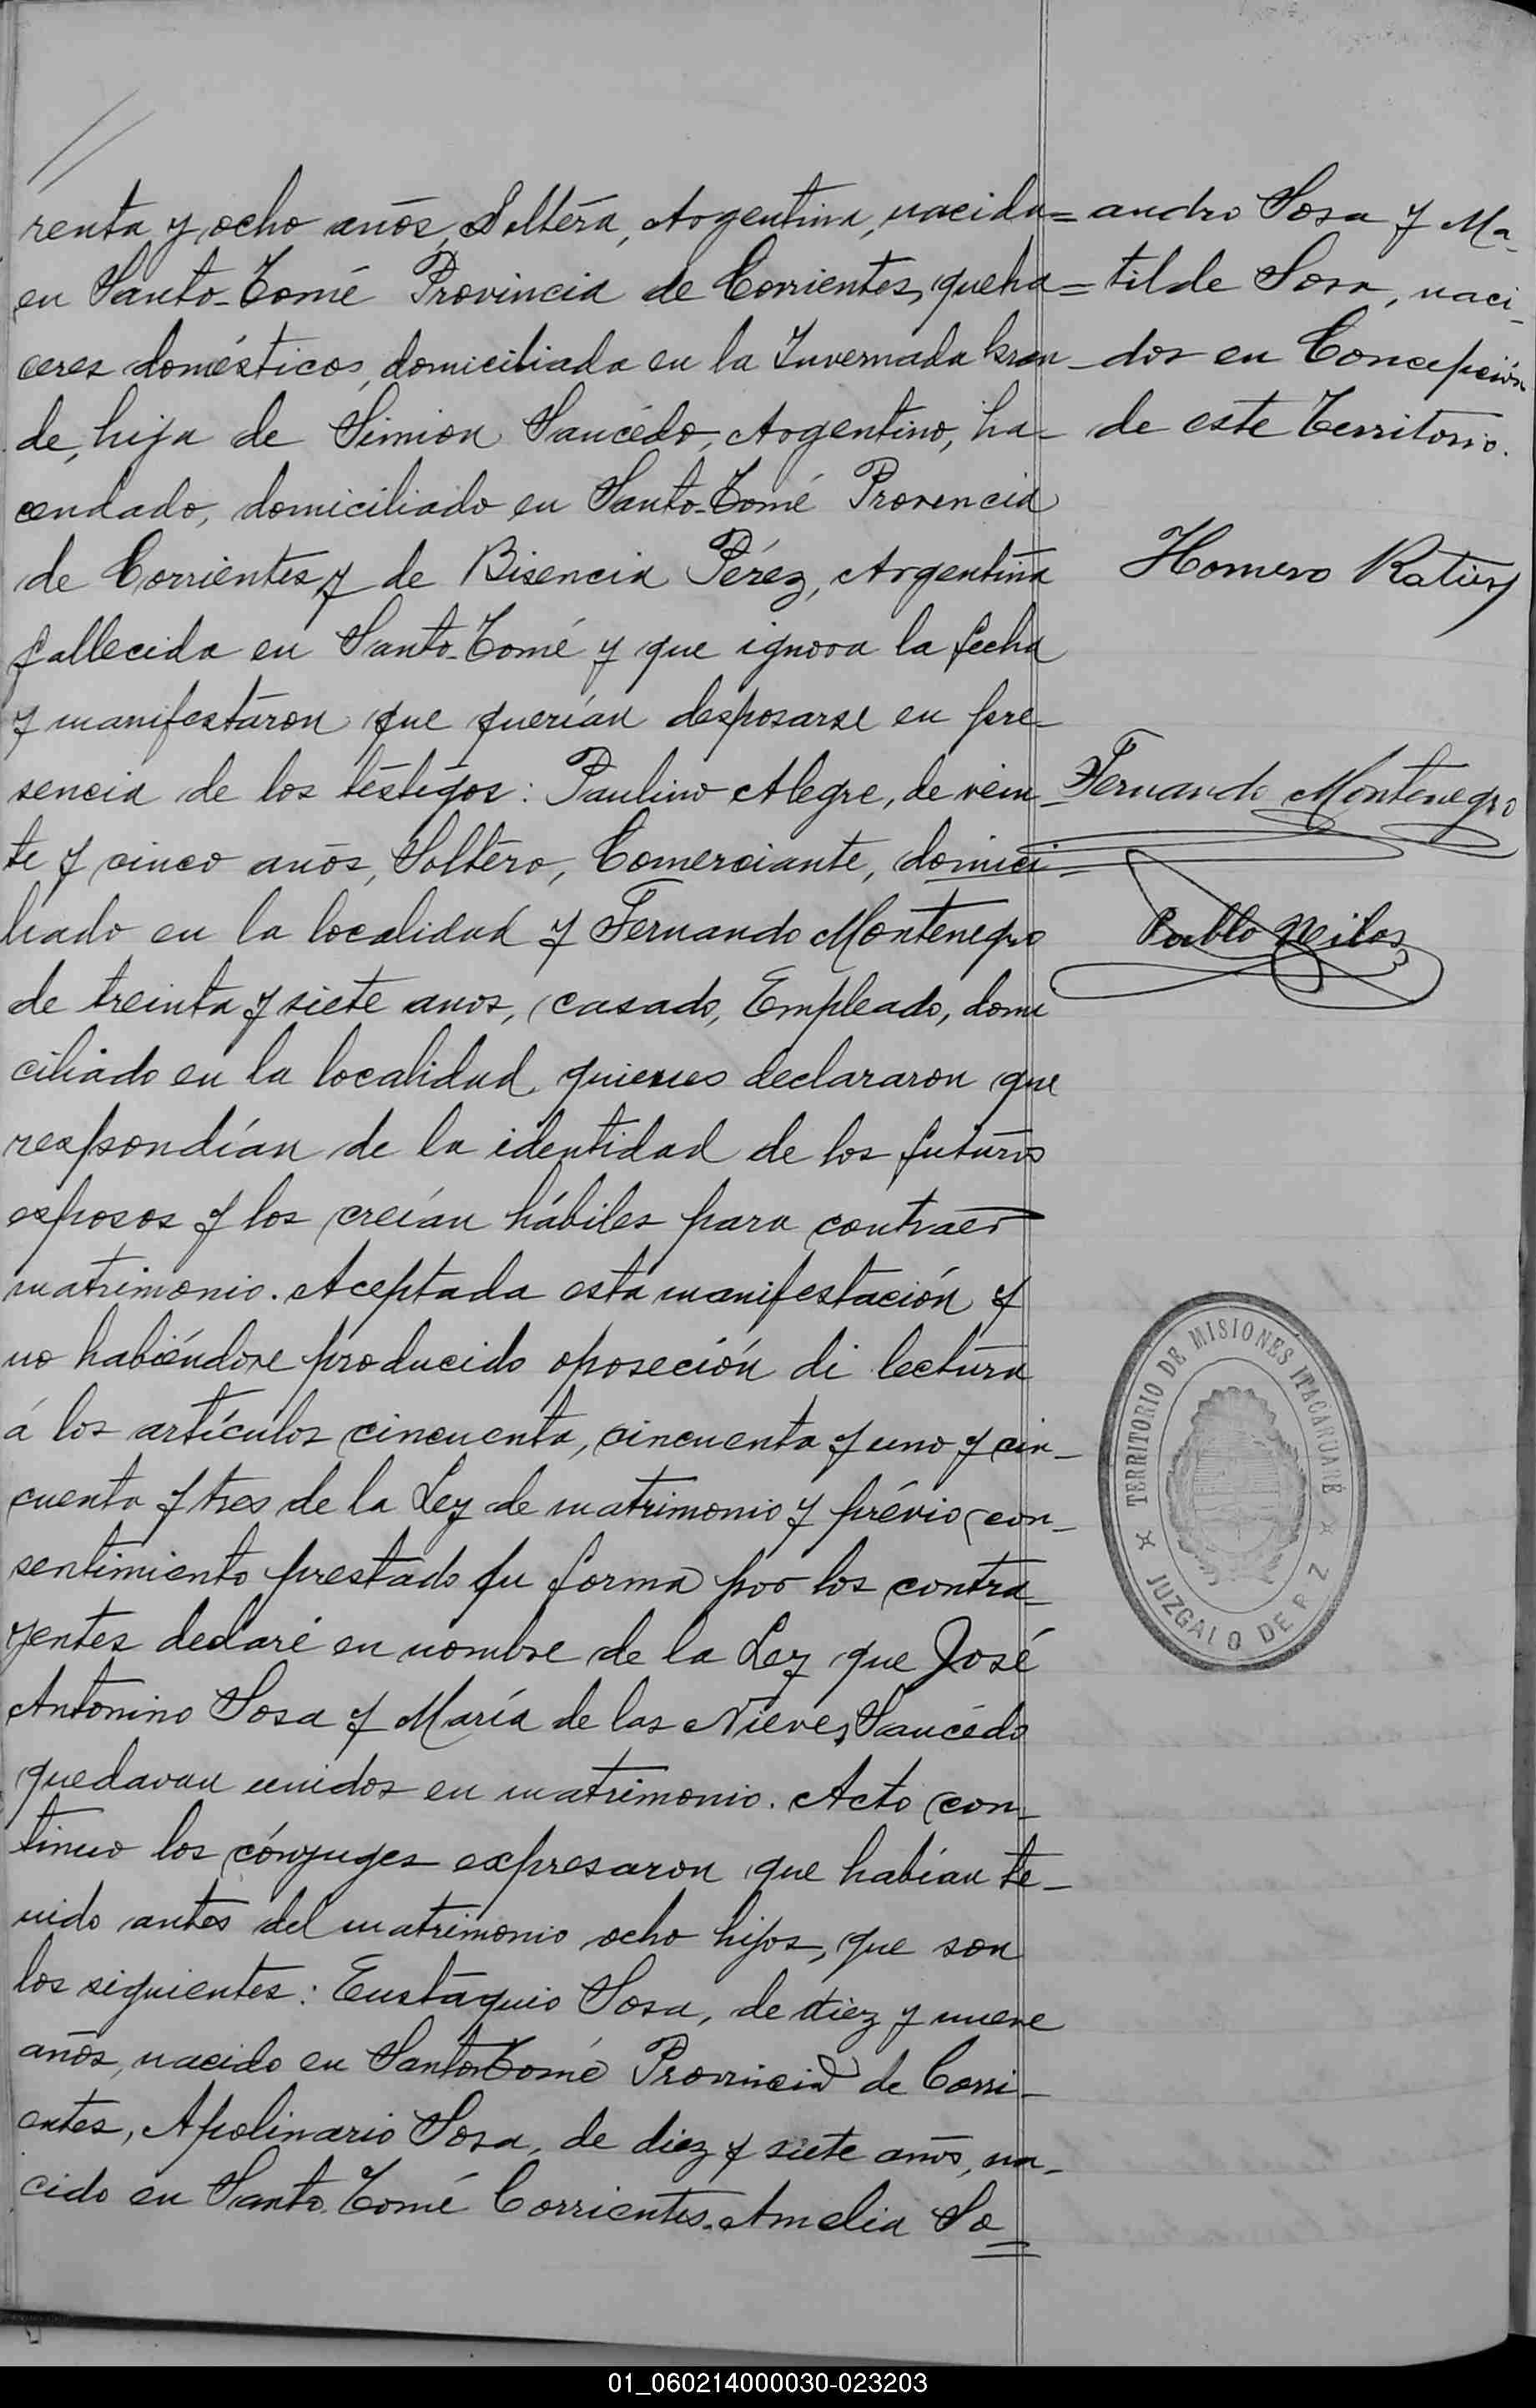 renta y ocho años, Soltera, Argentina, nacida=
en Santo-Tomé Provincia de Corrientes, queha=
ceres domésticos, domiciliada en la Invernada Gran
de, hija de Simion Saucédo, Argentino, ha-
cendado, domiciliado en Santo-Tomé Provencia
de Corrientes y de Bisencia Pérez, Argentina
fallecida en Santo-Tomé y que ignora la fecha
y manifestaron que querían desposarse en pre-
sencia de los testigos: Paulino Alegre, de vein-
te y cinco años, Soltero, Comerciante, domici=
liado en la localidad y Fernando Montenegro
de treinta y siete anos, casado, Empleado, domi
ciliado en la localidad, quienes declararon que
respondían de la identidad de los futuros
esposos y los creían hábiles para contraer
matrimonio. Aceptada esta manifestación y
no habiéndose producido oposeción di lectura
á los artículos cincuenta, cincuenta y uno y cin-
cuenta y tres de la Ley de matrimonio y prévio con-
sentimiento prestado en forma por los contra-
yentes declaré en nombre de la Ley que José
Antonino Sosa y María de las Nieves Saucédo
quedavan unidos en matrimonio. Acto con-
tinuo los cónyuges expresaron que habían te-
nido antes del matrimonio ocho hijos, que son
los siguientes: Eustaquio Sosa, de diez y nueve
años, nacido en Santo Tomé Provincia de Corri-
entes, Apolinario Sosa, de diez y siete años, na-
cido en Santo Tomé Corrientes. Amelia So
andro Sosa y Ma-
tilde Sosa, naci-
dos en Concepción
de este Territorio.
Homero
Fernando Montenegro
Pablo
TERRITORIO DE MISIONES ITACARUARÉ
JUZGADO DE P Z
01_060214000030-023203